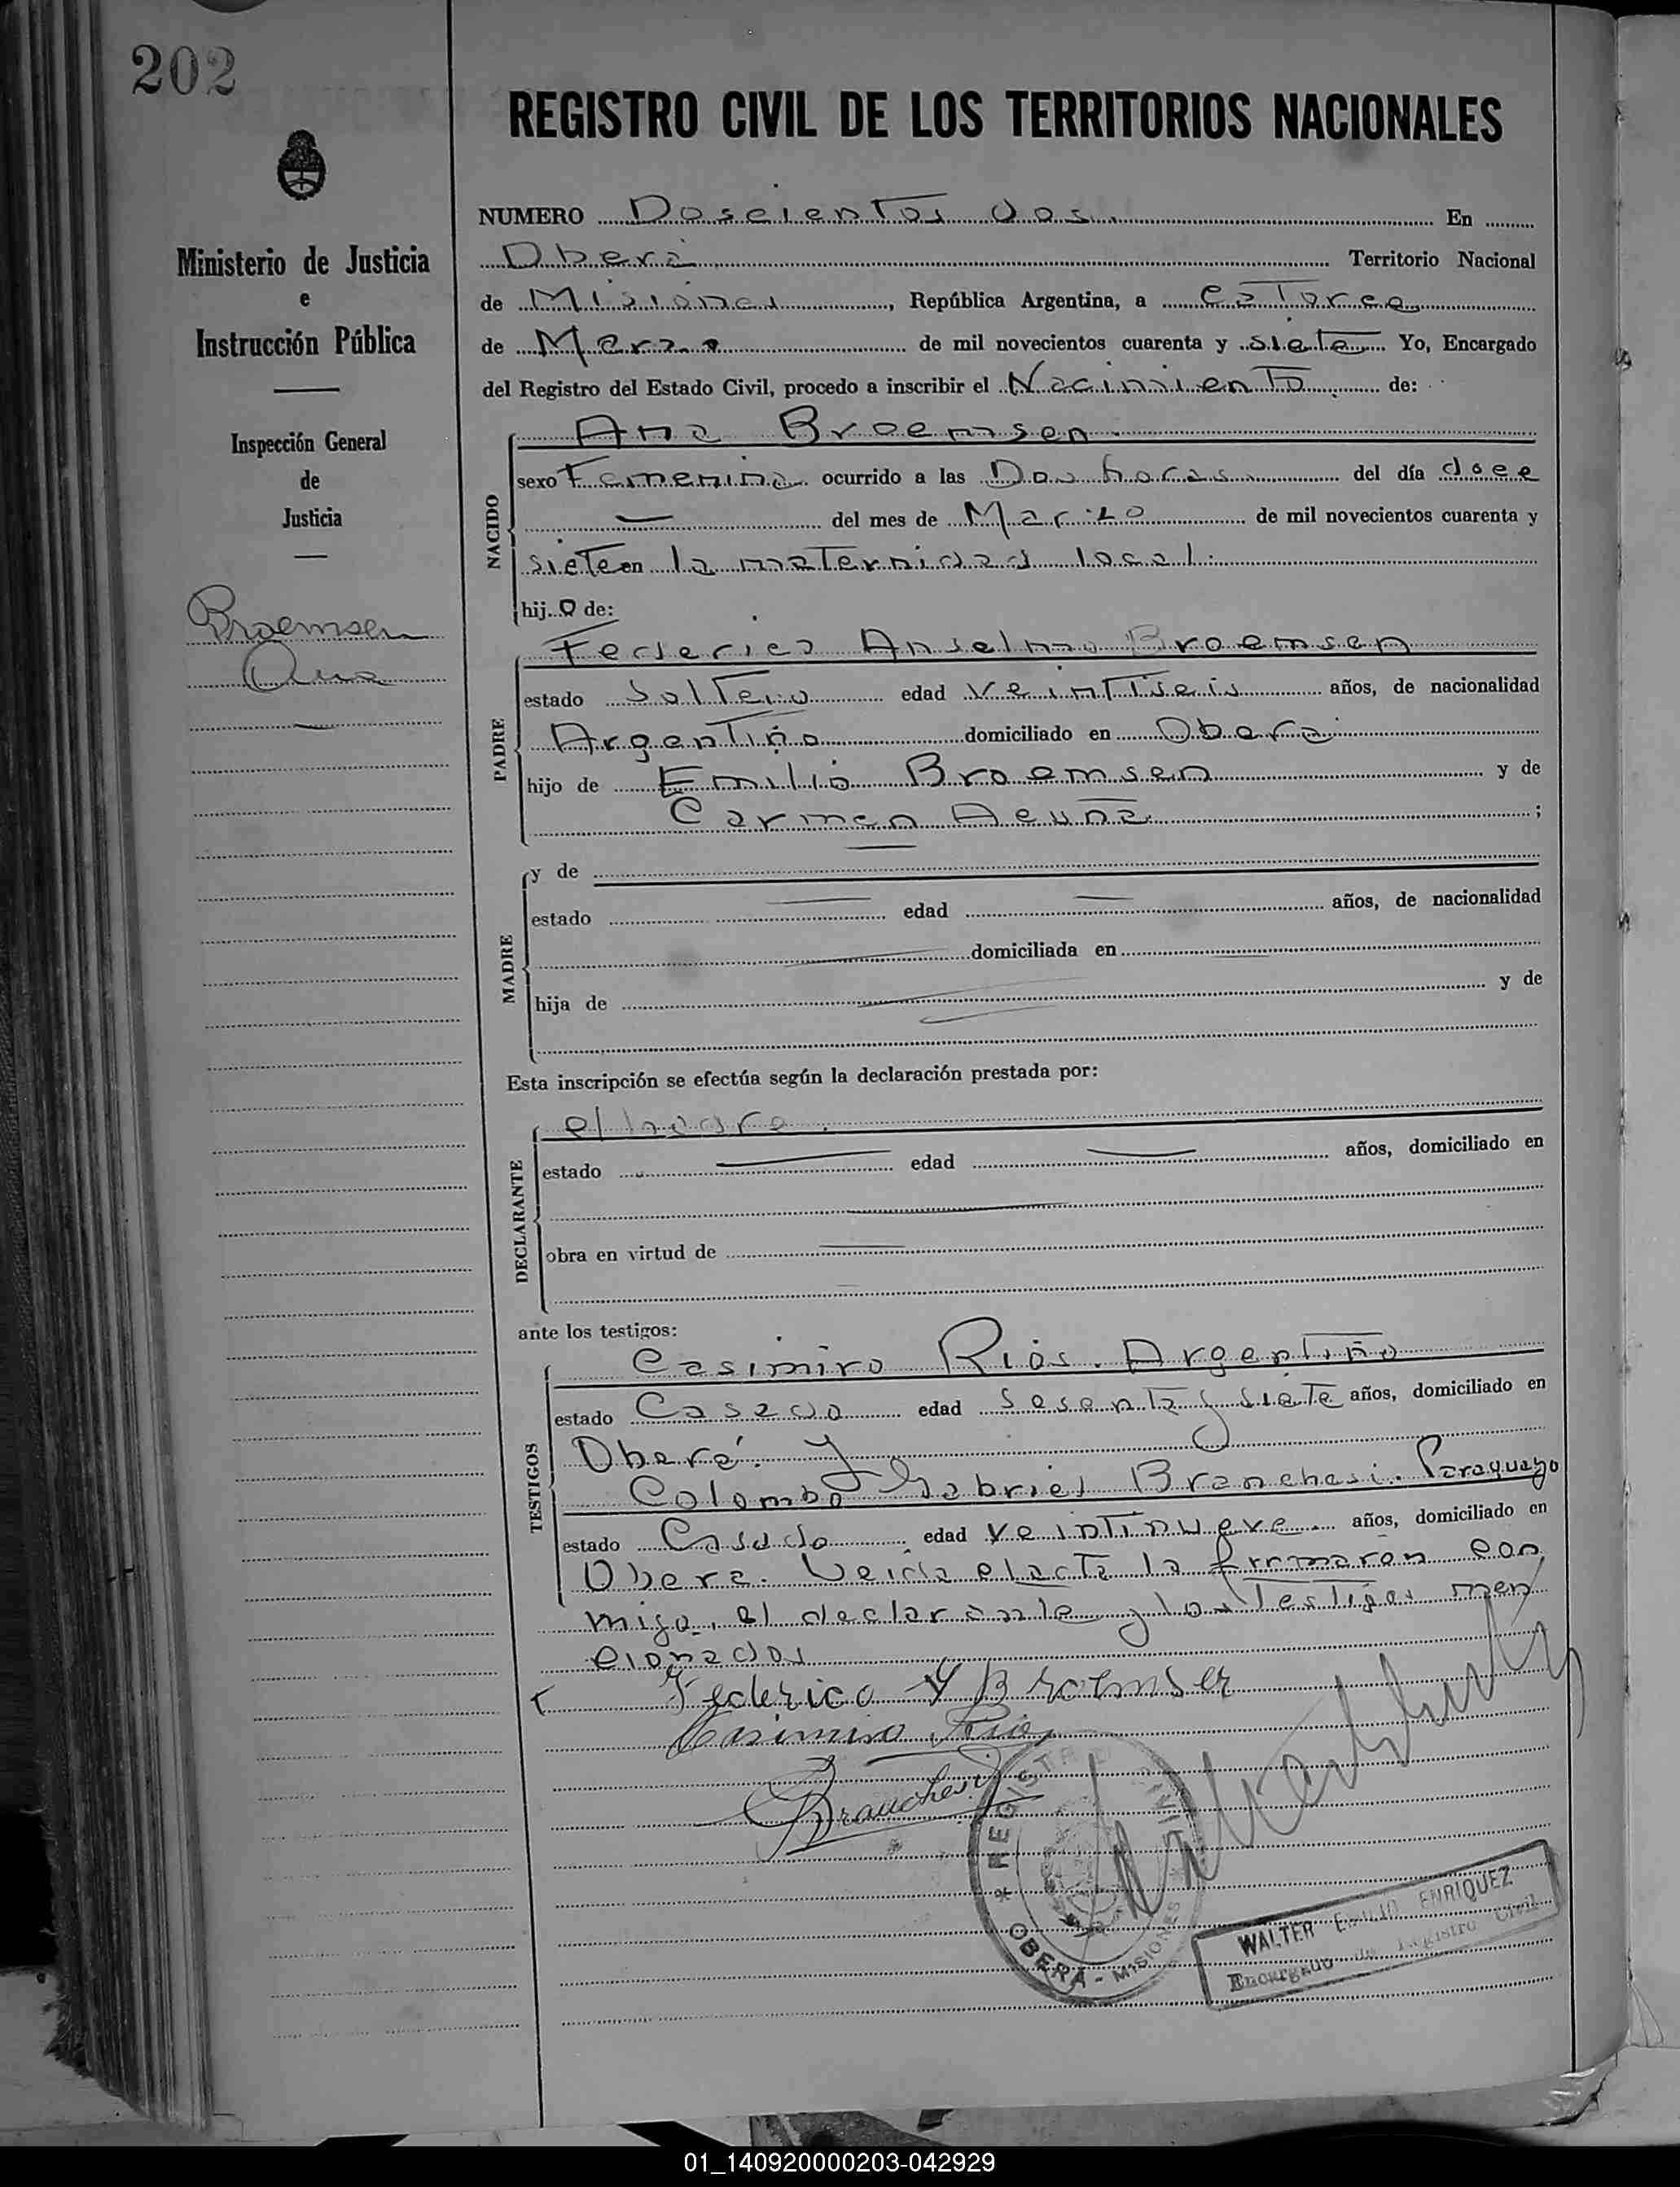 202
REGISTRO CIVIL DE LOS TERRITORIOS NACIONALES
Ministerio de Justicia
e
Instrucción Pública
Inspección General
de
Justicia
Broemsen
Ana
NUMERO Doscientos dos. En
Oberá Territorio Nacional
de Misiones, República Argentina, a catorce
de Marzo de mil novecientos cuarenta y siete Yo, Encargado
del Registro del Estado Civil, procedo a inscribir el Nacimiento de:
NACIDO
Ana Broemsen.
sexo Femenino ocurrido a las Dos horas del día doce
del mes de Marzo de mil novecientos cuarenta y
siete en la maternidad local.
hij a de:
PADRE
Federico Anselmo Broemsen
estado soltero edad veintiseis años, de nacionalidad
Argentino domiciliado en Oberá
hijo de Emilio Broemsen y de
Carmen Acuña ;
MADRE
y de
estado edad años, de nacionalidad
domiciliada en
hija de y de
Esta inscripción se efectúa según la declaración prestada por:
DECLARANTE
el padre.
estado edad años, domiciliado en
obra en virtud de
ante los testigos:
TESTIGOS
Casimiro Rios. Argentino
estado Casado edad sesenta y siete años, domiciliado en
Oberá. y
Colombo Gabriel Branchesi. Paraguayo
estado Casado edad veintinueve años, domiciliado en
Oberá. Leida el acta la firmaron con
migo, el declarante y los testigos men
cionados
Federico A Broemsen
Casimiro Rios
Branchesi
REGISTRO CIVIL
OBERÁ - MISIONES
WALTER EMILIO ENRIQUEZ
Encargado de Registro Civil
01_140920000203-042929